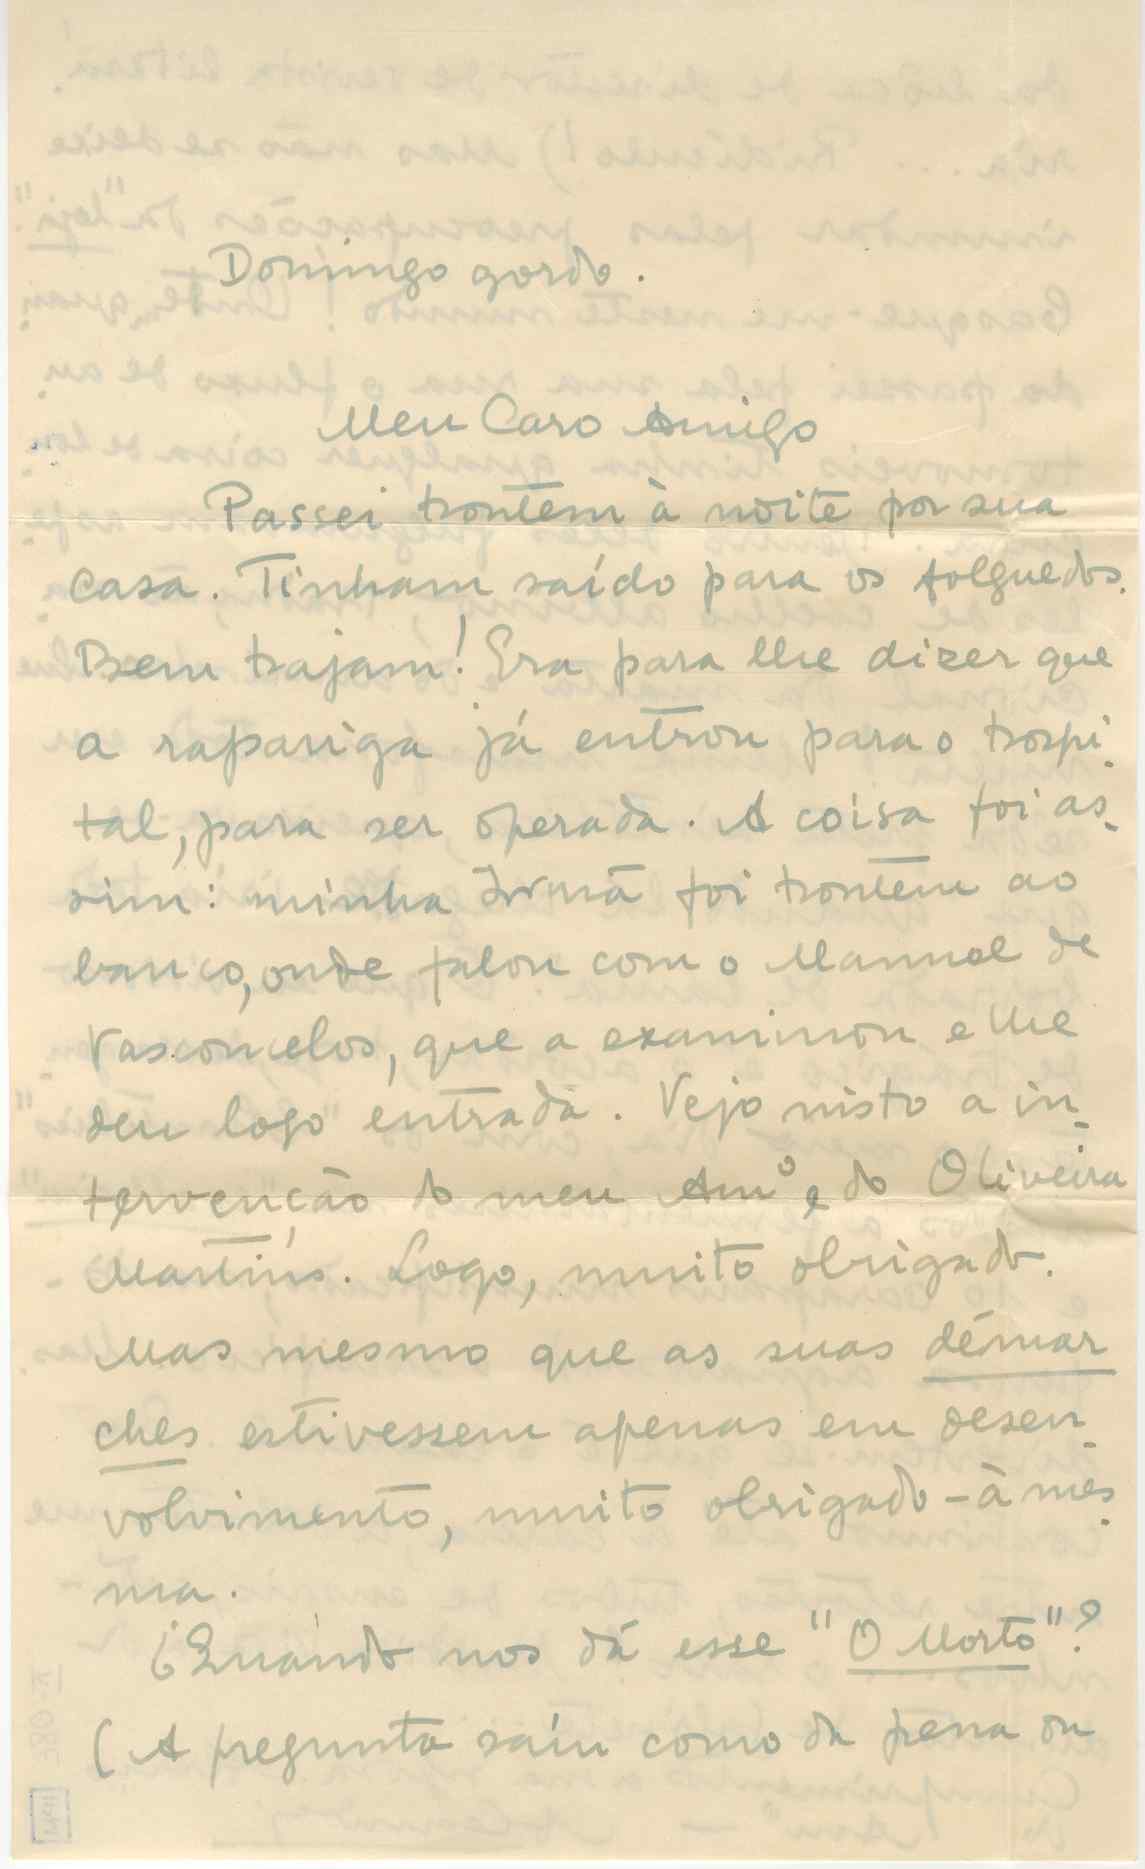 Domingo gordo.
Meu Caro Amigo
Passei hontem à noite por sua
casa. Tinham saído para os folguedos.
Bem hajam! Era para lhe dizer que
a rapariga já entrou para o hospi-
tal, para ser operada. A coisa foi as-
sim: minha Irmã foi hontem ao
banco, onde falou com o Manuel de
Vasconcelos, que a examinou e lhe
deu logo entrada. Vejo nisto a in-
tervenção do meu Amº e do Oliveira
Martins. Logo, muito obrigado.
Mas mesmo que as suas démar
ches estivessem apenas em desen-
volvimento, muito obrigado-à mes-
ma.
¿Quando nos dá esse "O Morto"?
(A pregunta saíu como da pena ou